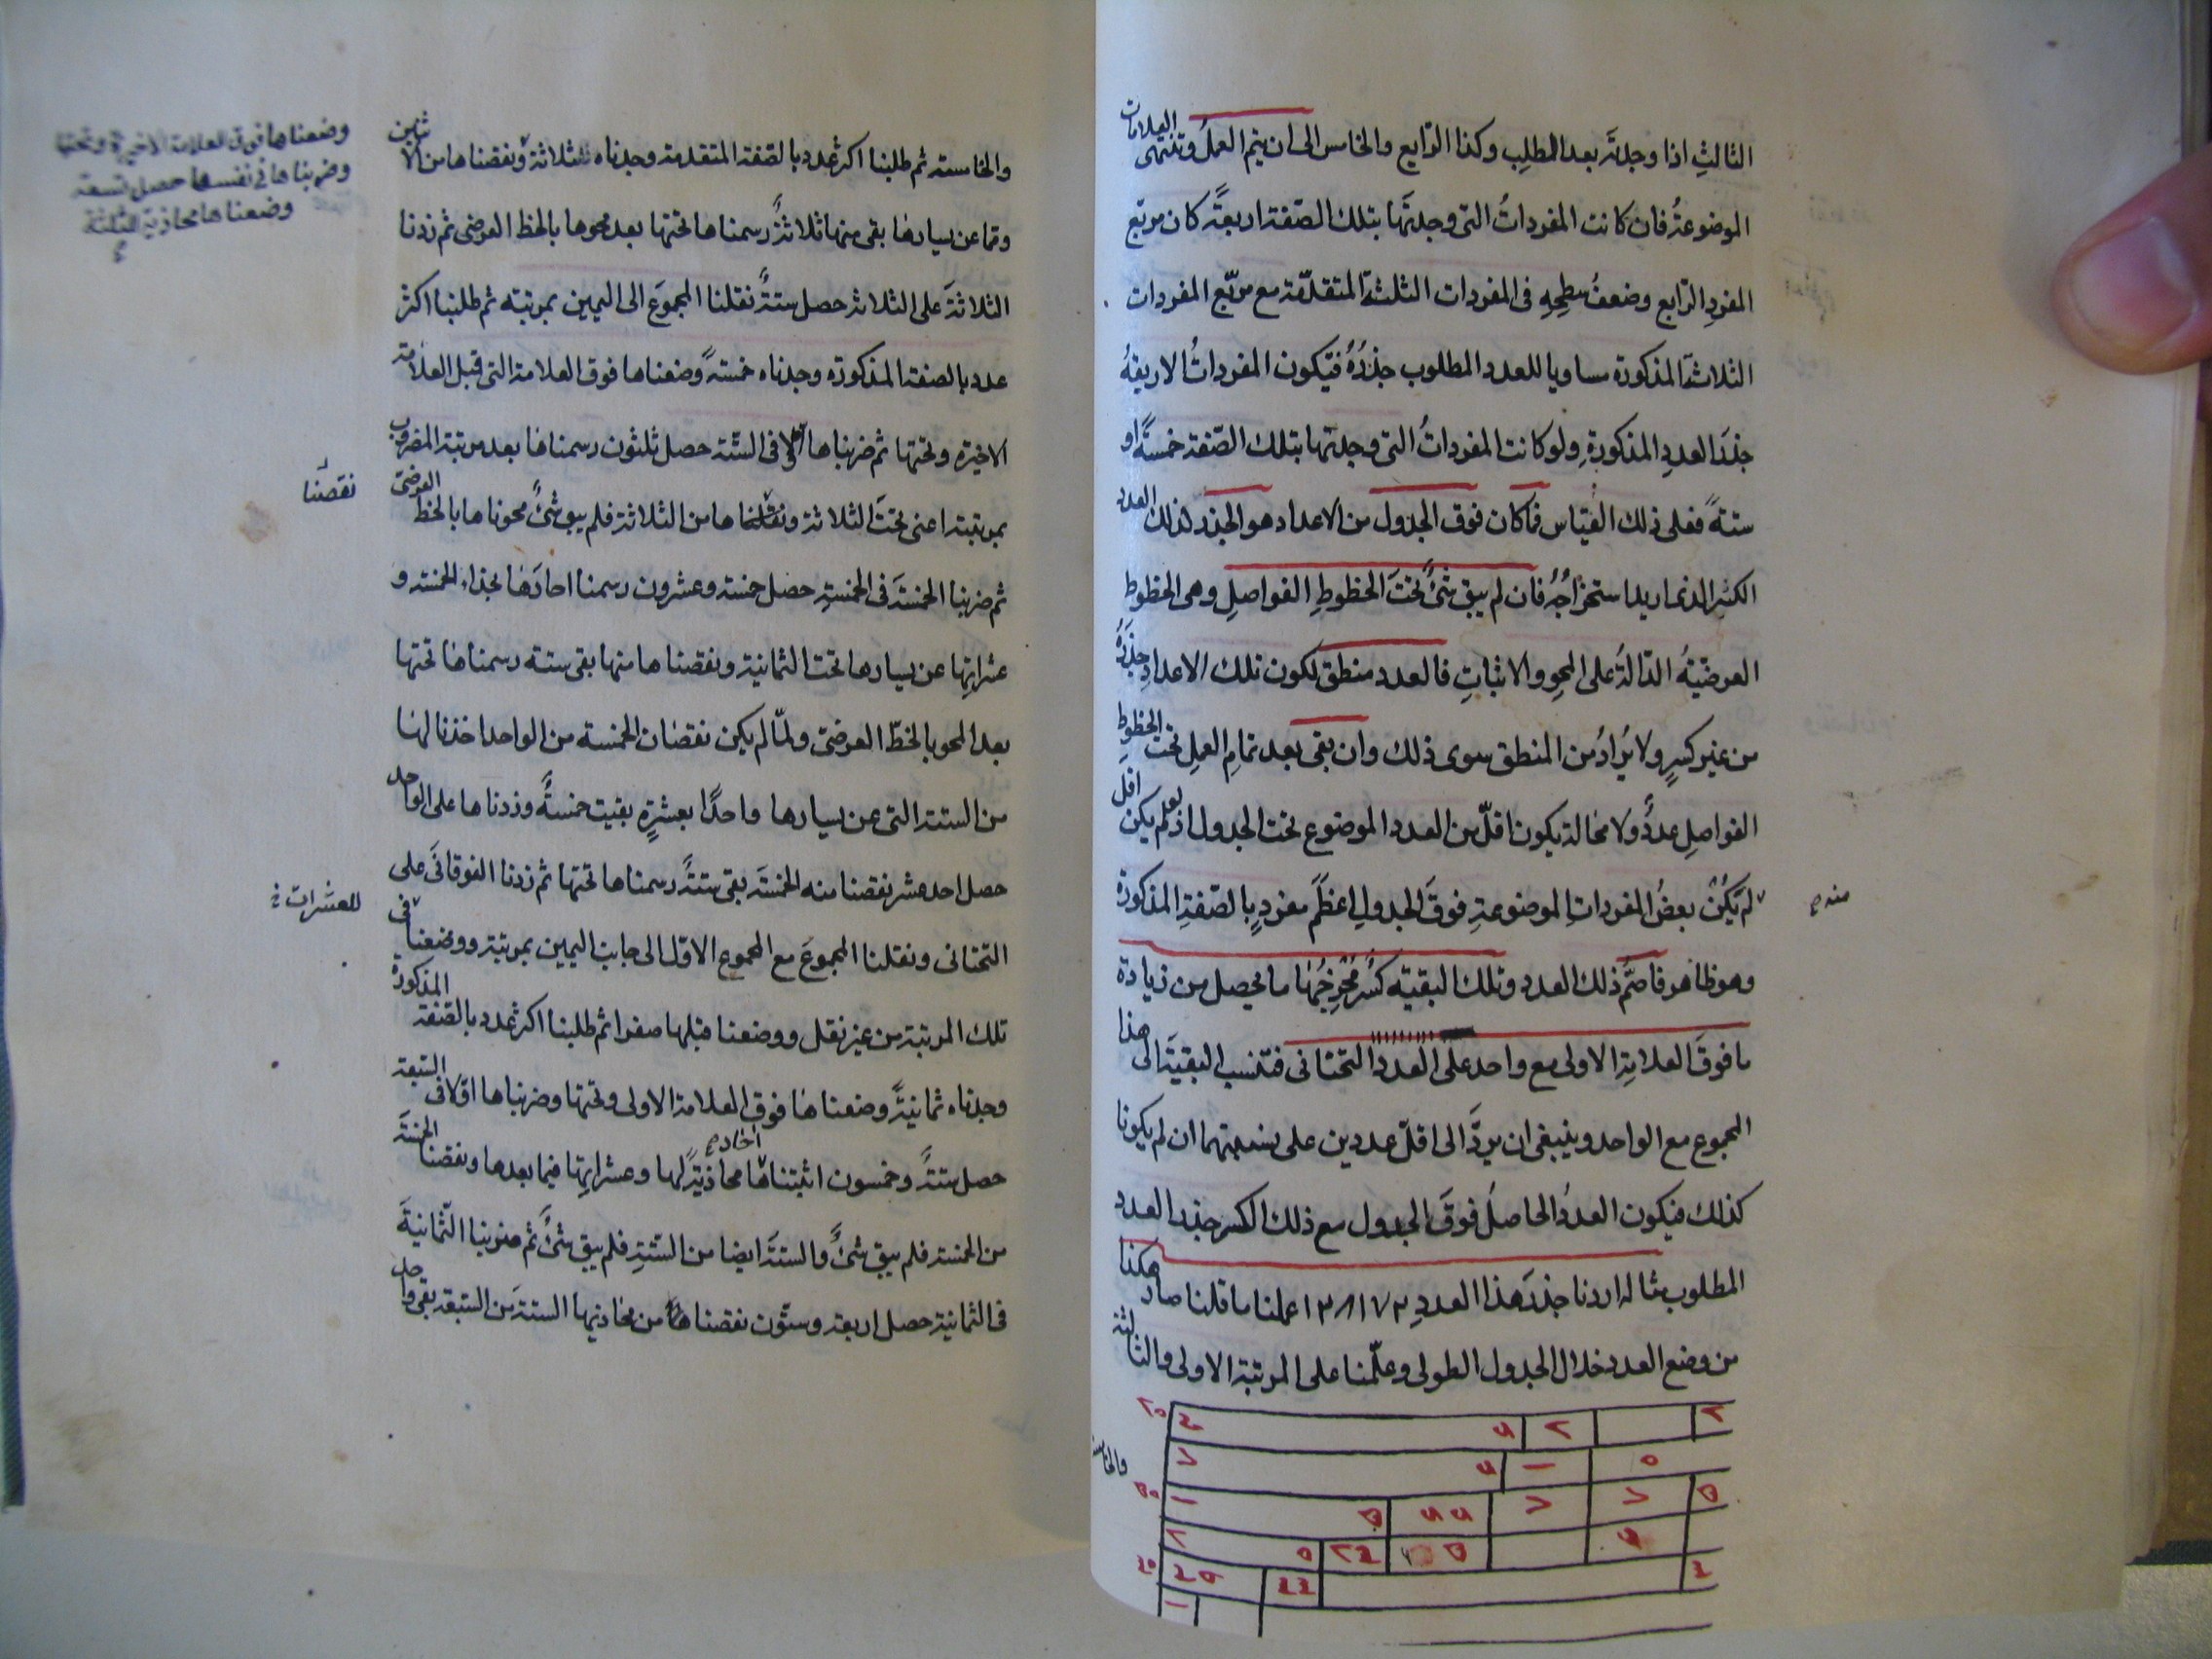 الثالثِ اذا وجدتَه بعد الطلبِ وكذا الرّابع والخامس الى ان يتم العملُ وتنتهى العلامات
الموضوعةُ فان كانت المفرداتُ التى وجدتَها بتلك الصّفة اربعةً كان مربّع
المفردِ الرّابع وضعفُ سطحِهِ فى المفردات الثلثةِ المتقدّمة مع مربّع المفردات
الثلاثةِ المذكورة مساويا للعدد المطلوب جذرُهُ فتكون المفرداتُ الاربعةُ
جذرَ العددِ المذكورةِ ولو كانت المفرداتُ التى وجدتها بتلك الصّفة خمسةً او
ستةً فعلى ذلك القياس فما كان فوق الجدول من الاعداد هو الجذر لذلك العدد
الكثيرِ الذى اريد استخراجُهُ فان لم يبق شئٌ تحتَ الخطوطِ الفواصلِ وهى الخطوط
العرضيّةُ الدّالةُ على المحوِ والاثباتِ فالعدد منطق لكون تلك الاعدادِ جذرَهُ
من غير كسرٍ ولا يُرادُ من المنطق سوى ذلك وان بقى بعد تمامِ العملِ تحت الخطوطِ
الفواصلِ عددٌ ولا محالة يكون اقلّ من العدد الموضوع تحت الجدول اذ لو لم يكن اقل
لم يَكُنْ بعضُ المفرداتِ الموضوعةِ فوقَ الجدولِ اعظَمَ مفردٍ بالصّفةِ المذكورة
منه
وهو ظاهر فاصَمُّ ذلك العدد وتلك البقيّة كسرٌ مُخْرِجُهَا ما يحصل من زيادة
ما فوقَ العلامةِ الاولى مع واحد على العدد التحتانى فتنسب البقيّةَ الى هذا
المجموع مع الواحد وينبغى ان يردَّ الى اقلّ عددين على نسبتهما ان لم يكونا
كذلك فيكون العددُ الحاصلُ فوقَ الجدول مع ذلك الكسر جذر العدد
المطلوب مثاله اردنا جذرَ هذا العددِ ١٢٨١٧٢ عملنا ما قلنا صار هكذا
من وضع العدد خلال الجدول الطولى وعلّمنا على المرتبة الاولى والثالثة
والخامسة
والخامسته ثم طلبنا اكثر عدد بالصّفة المتقدمة وجدناه ثلاثة ونقصناها من الا
وضعناها فوق العلامة الاخيرة وتحتها
وضربناها فى نفسها حصل تسعة
وضعناها محاذية للثلثة
وممّا عن يسارها بقى منها ثلاثةٌ رسمناها تحتها بعد محوها بالخط العرضى ثم زدنا
الثلاثةَ على الثلاثة حصل ستةٌ نقلنا المجموعَ الى اليمين بمرتبته ثم طلبنا اكثر
عدد بالصفة المذكورة وجدناه خمسةً وضعناها فوق العلامة التى قبل العلامة
الاخيرة وتحتها ثم ضربناها اولا فى الستّة حصل ثلثون رسمناها بعد مرتبة المضروب
بمرتبته اعنى تحتَ الثلاثة ونقلناها من الثلاثة فلم يبق شئٌ محوناها بالخط العرضىّ
نقصنا
ثم ضربنا الخمسةَ فى الخمسةِ حصل خمسة وعشرون رسمنا احادَها بحذاء الخمسة و
عشراتِها عن يسارها تحت الثمانية ونقصناها منها بقى ستة رسمناها تحتها
بعد المحو بالخطّ العرضى ولمّا لم يكن نقصان الخمسة من الواحد اخذنا لها
من الستة التى عن يسارها واحدًا بعشرةٍ بقيت خمسةٌ وزدناها على الواحد
حصل احد عشر نقصنا منه الخمسةَ بقى ستةٌ رسمناها تحتها ثم زدنا الفوقانىَ على
للعشرات
التحتانى ونقلنا المجموعَ مع المجموع الاوّل الى جانب اليمين بمرتبة ووضعنا فى
تلك المرتبة من غير نقل ووضعنا قبلها صفرا ثم طلبنا اكثر عدد بالصّفة المذكورة
وجدناه ثمانيةً وضعناها فوق العلامة الاولى وتحتها وضربناها اوّلا فى السّبعة
حصل ستةٌ وخمسون اثبتنا احادها محاذيةً لها وعشراتِها فيما بعدها ونقصنا الخمسةَ
من الخمسة فلم يبق شئٌ والستةَ ايضا من السّتةِ فلم يبق شئٌ ثم ضربنا الثّمانيةَ
فى الثمانية حصل اربعة وستّون نقصناها من محاذيها الستةَ من السّبعة بقى واحد